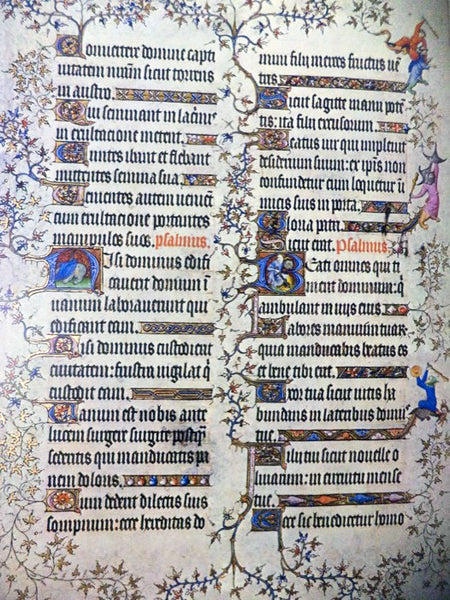 Convertere domine capti
vitatem nram sicut torrens
in austro.
Qui seminant in lacrimis
in exultacione metent.
Euntes ibant et flebant
mittentes semina sua.
Venientes autem venient
cum exultacione portantes
manipulos suos. psalmus.
Nisi dominus edifi
caverit domum in
vanum laboraverunt qui
edificant eam.
Nisi dominus custodierit
civitatem: frustra vigilat q̄
custodit eam.
Vanum est nobis ante
lucem surgere surgite postq̄
sedentis qui manducatis pa
nem doloris.
Cum dederit dilectis suis
sompnum: ecce hereditas do
mini filij merces fructus vē
tris.
Sicut sagitte manu potē
tis: ita filij excussorum.
Beatus vir qui implevit
desiderium suum: ex ipsis non
confundetur cum loquetur ī
imicis suis in porta.
Gloria patri.
Sicut erat. Psalmus.
Beati omnes qui ti
ment dominum: q̄
ambulant in vijs eius
Labores manuum tuar
quia manducabis beatus es
et bene tibi erit.
Uxor tua sicut vitis ha
bundans in lateribus domus
tue.
Filij tui sicut novelle o
livarum: in circuitu mense
tue.
Ecce sic benedicetur homo